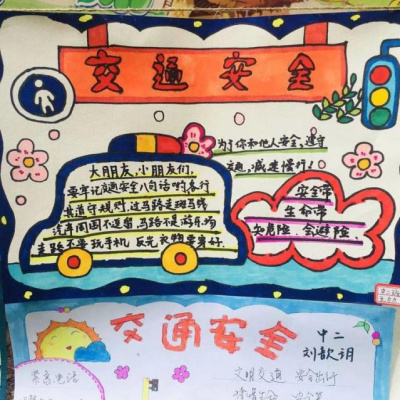 交通安全
为了你和他人安全,遵守
交通,减速慢行!
大朋友,小朋友们,
要牢记交通安全八句话哟各行
其道守规则,过马路走斑马线
汽车周围不逗留,马路不是游乐场
走路不要玩手机 反光衣物要穿好.
安全带
生命带
知危险、会避险.
交通安全
中二
刘歆玥
常亮电话
文明交通 安全出行